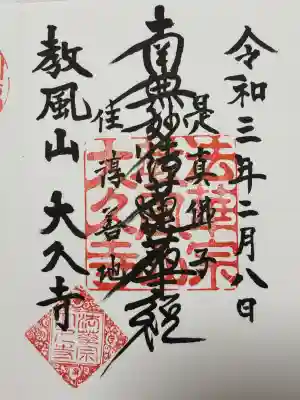 令和三年二月八日
是真佛子
南無妙法蓮華経
住淳善地
教風山 大久寺
法華宗
大久寺